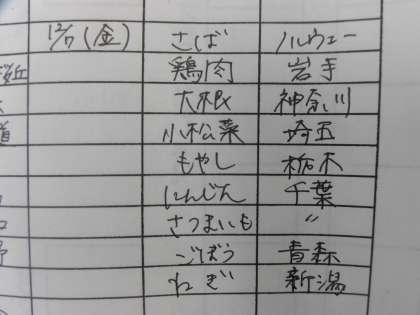 12/7(金) さば ノルウェー
鶏肉 岩手
大根 神奈川
道 小松菜 埼玉
もやし 栃木
にんじん 千葉
さつまいも 〃
ごぼう 青森
ねぎ 新潟